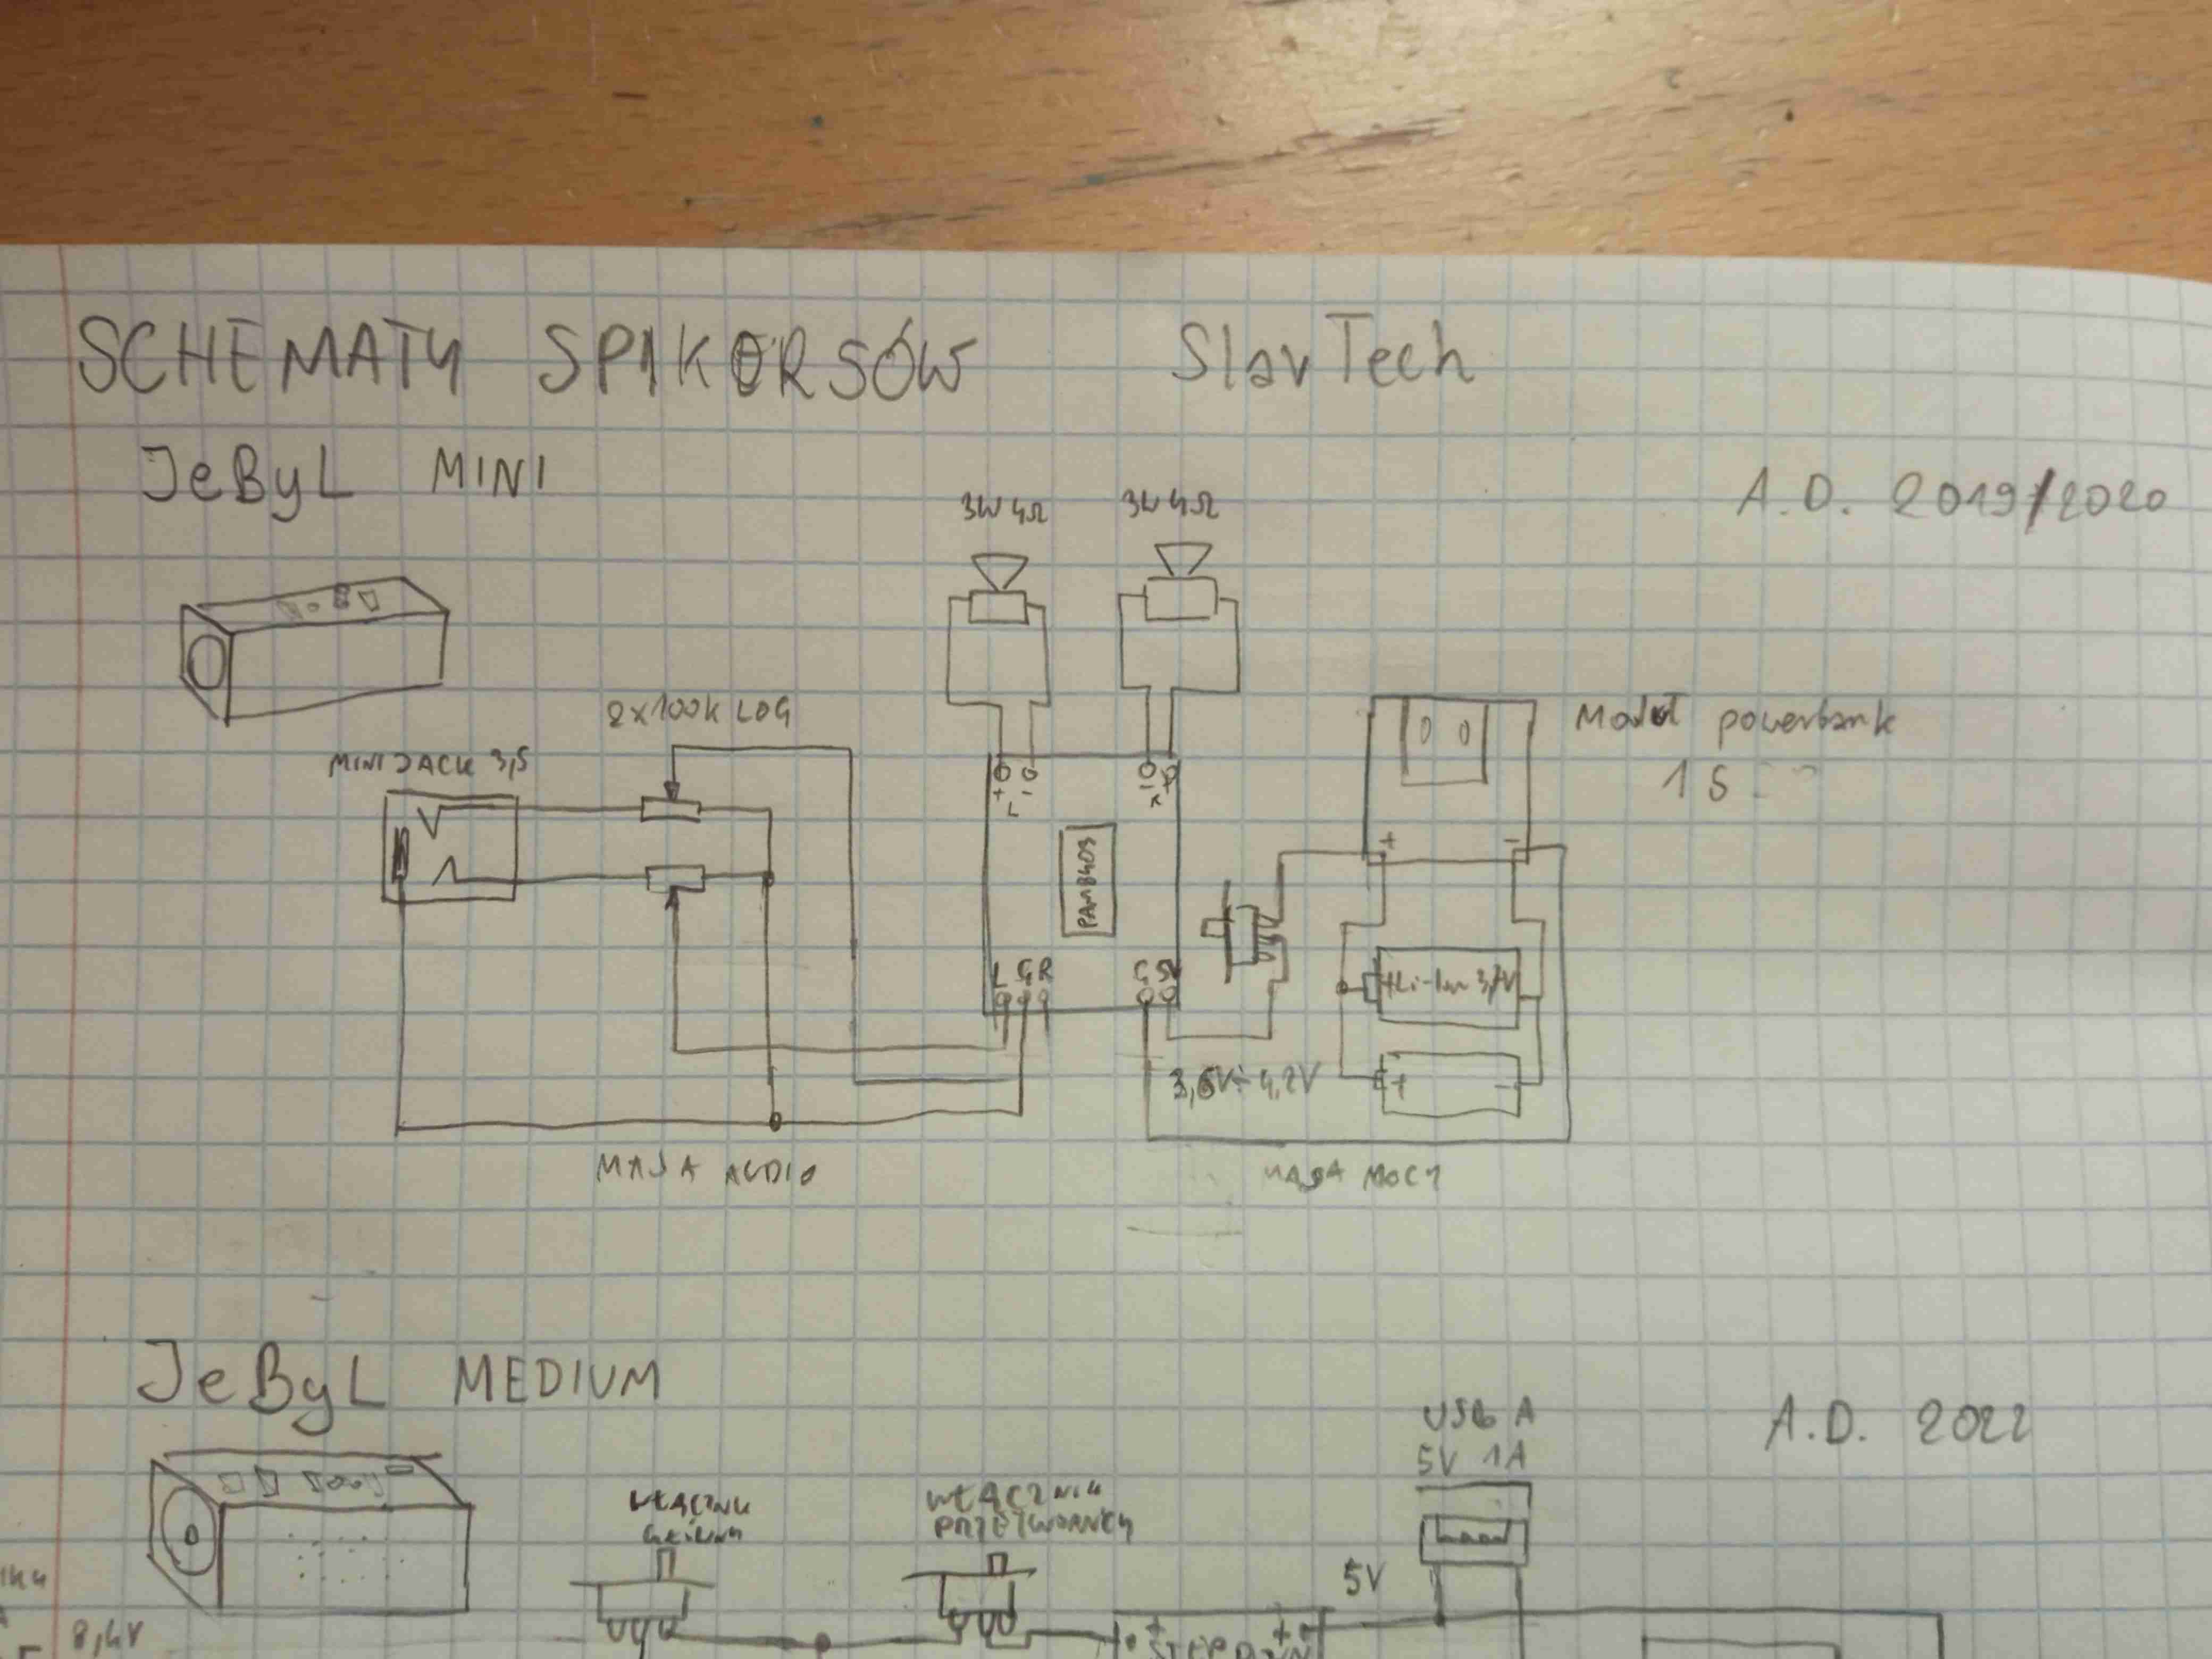 SCHEMATY SPIKERSÓW SlavTech
JeByL MINI
A.D. 2019/2020
3W 4Ω 3W 4Ω
2x100K LOG
MINI JACK 3,5
Moduł powerbank
1S
+ -
+ - - +
L
PAM8403
L G R G 5V
+Li-Ion 3,7V
3,6V÷4,2V
+ -
MASA AUDIO
MASA MOCY
JeByL MEDIUM
A.D. 2022
USB A
5V 1A
WŁĄCZNIK
GŁÓWNY
WŁĄCZNIK
PRZETWORNICY
5V
8,4V
+ +
STEP DOWN